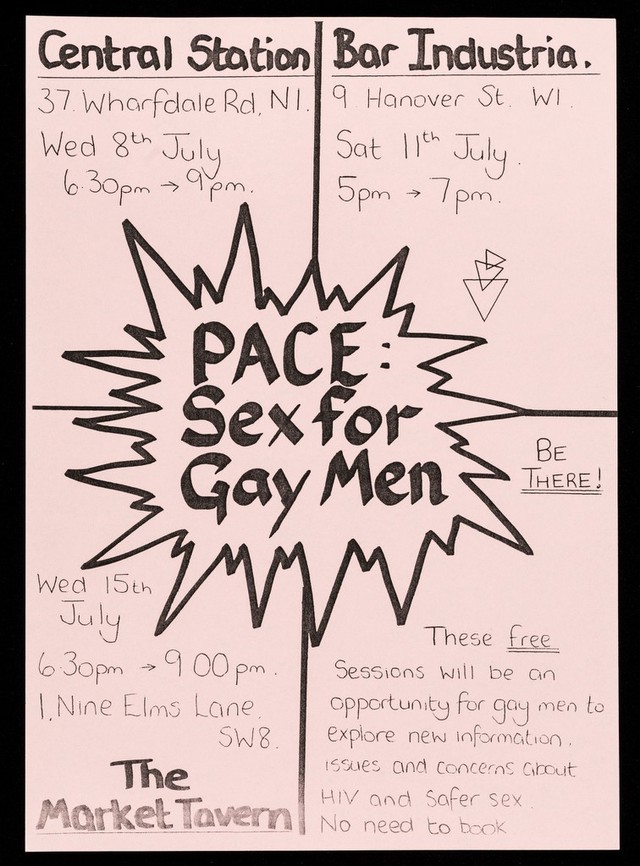 Central Station
37. Wharfdale Rd, N1.
Wed 8th July
6.30pm → 9pm.
Bar Industria.
9 Hanover St. W1.
Sat 11th July.
5pm → 7pm.
PACE:
Sex for
Gay Men
BE
THERE!
Wed 15th
July
6.30pm → 9 00pm.
1, Nine Elms Lane,
SW8.
The
Market Tavern
These free
Sessions will be an
opportunity for gay men to
explore new information.
issues and concerns about
HIV and safer sex.
No need to book